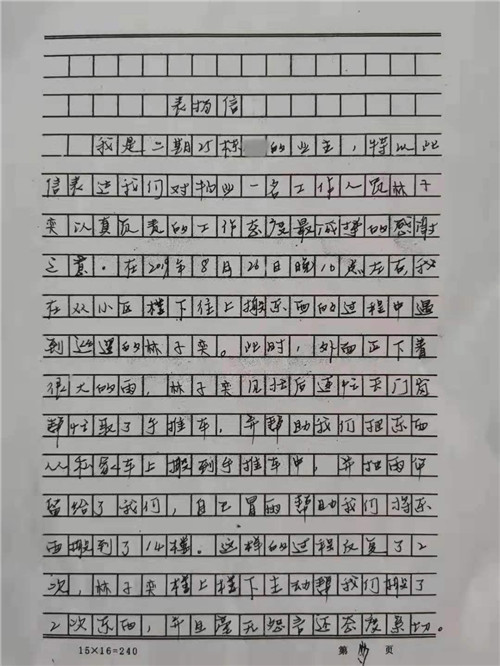 表扬信
我是二期25栋的业主，特以此
信表达我们对物业一名工作人员林子
奕认真负责的工作态度最诚挚的感谢
之意。在2019年8月26日晚10点左右，我
在从小区楼下往上搬东西的过程中遇
到巡逻的林子奕。此时，外面正下着
很大的雨，林子奕见状后连忙去门岗
帮忙取了手推车，并帮助我们把东西
从私家车上搬到手推车中，并把雨伞
留给了我们，自己冒雨帮助我们将东
西搬到了14楼。这样的过程反复了2
次，林子奕楼上楼下主动帮我们搬了
2次东西，并且毫无怨言还态度亲切。
15×16=240 第 页